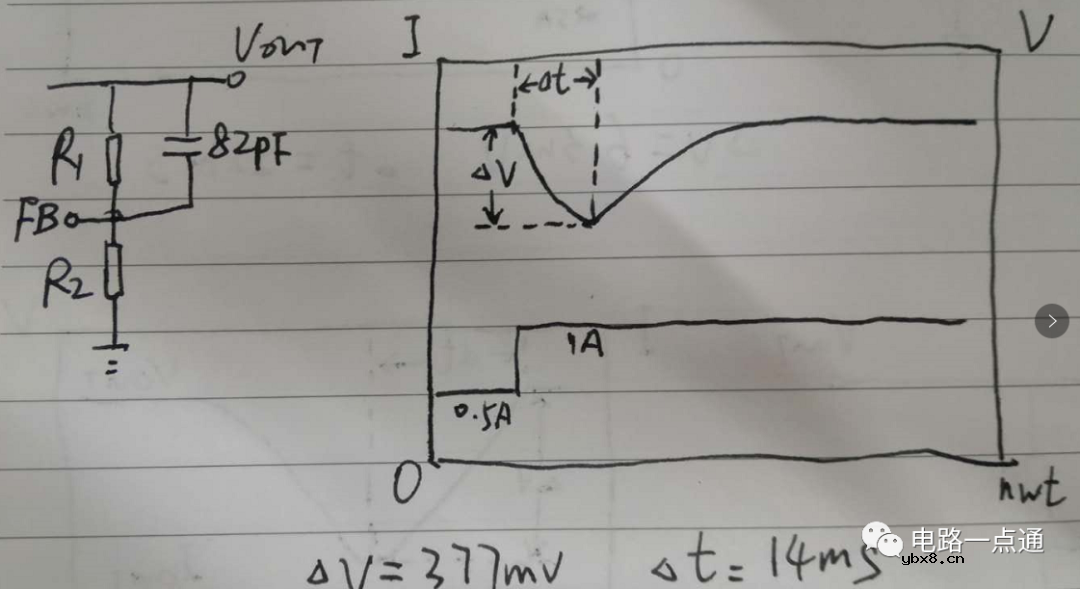 Vout
I
V
Δt
R1
82pF
ΔV
FB
R2
1A
0.5A
0
nwt
电路一点通
ybx8.cn
ΔV=377mv Δt=14ms